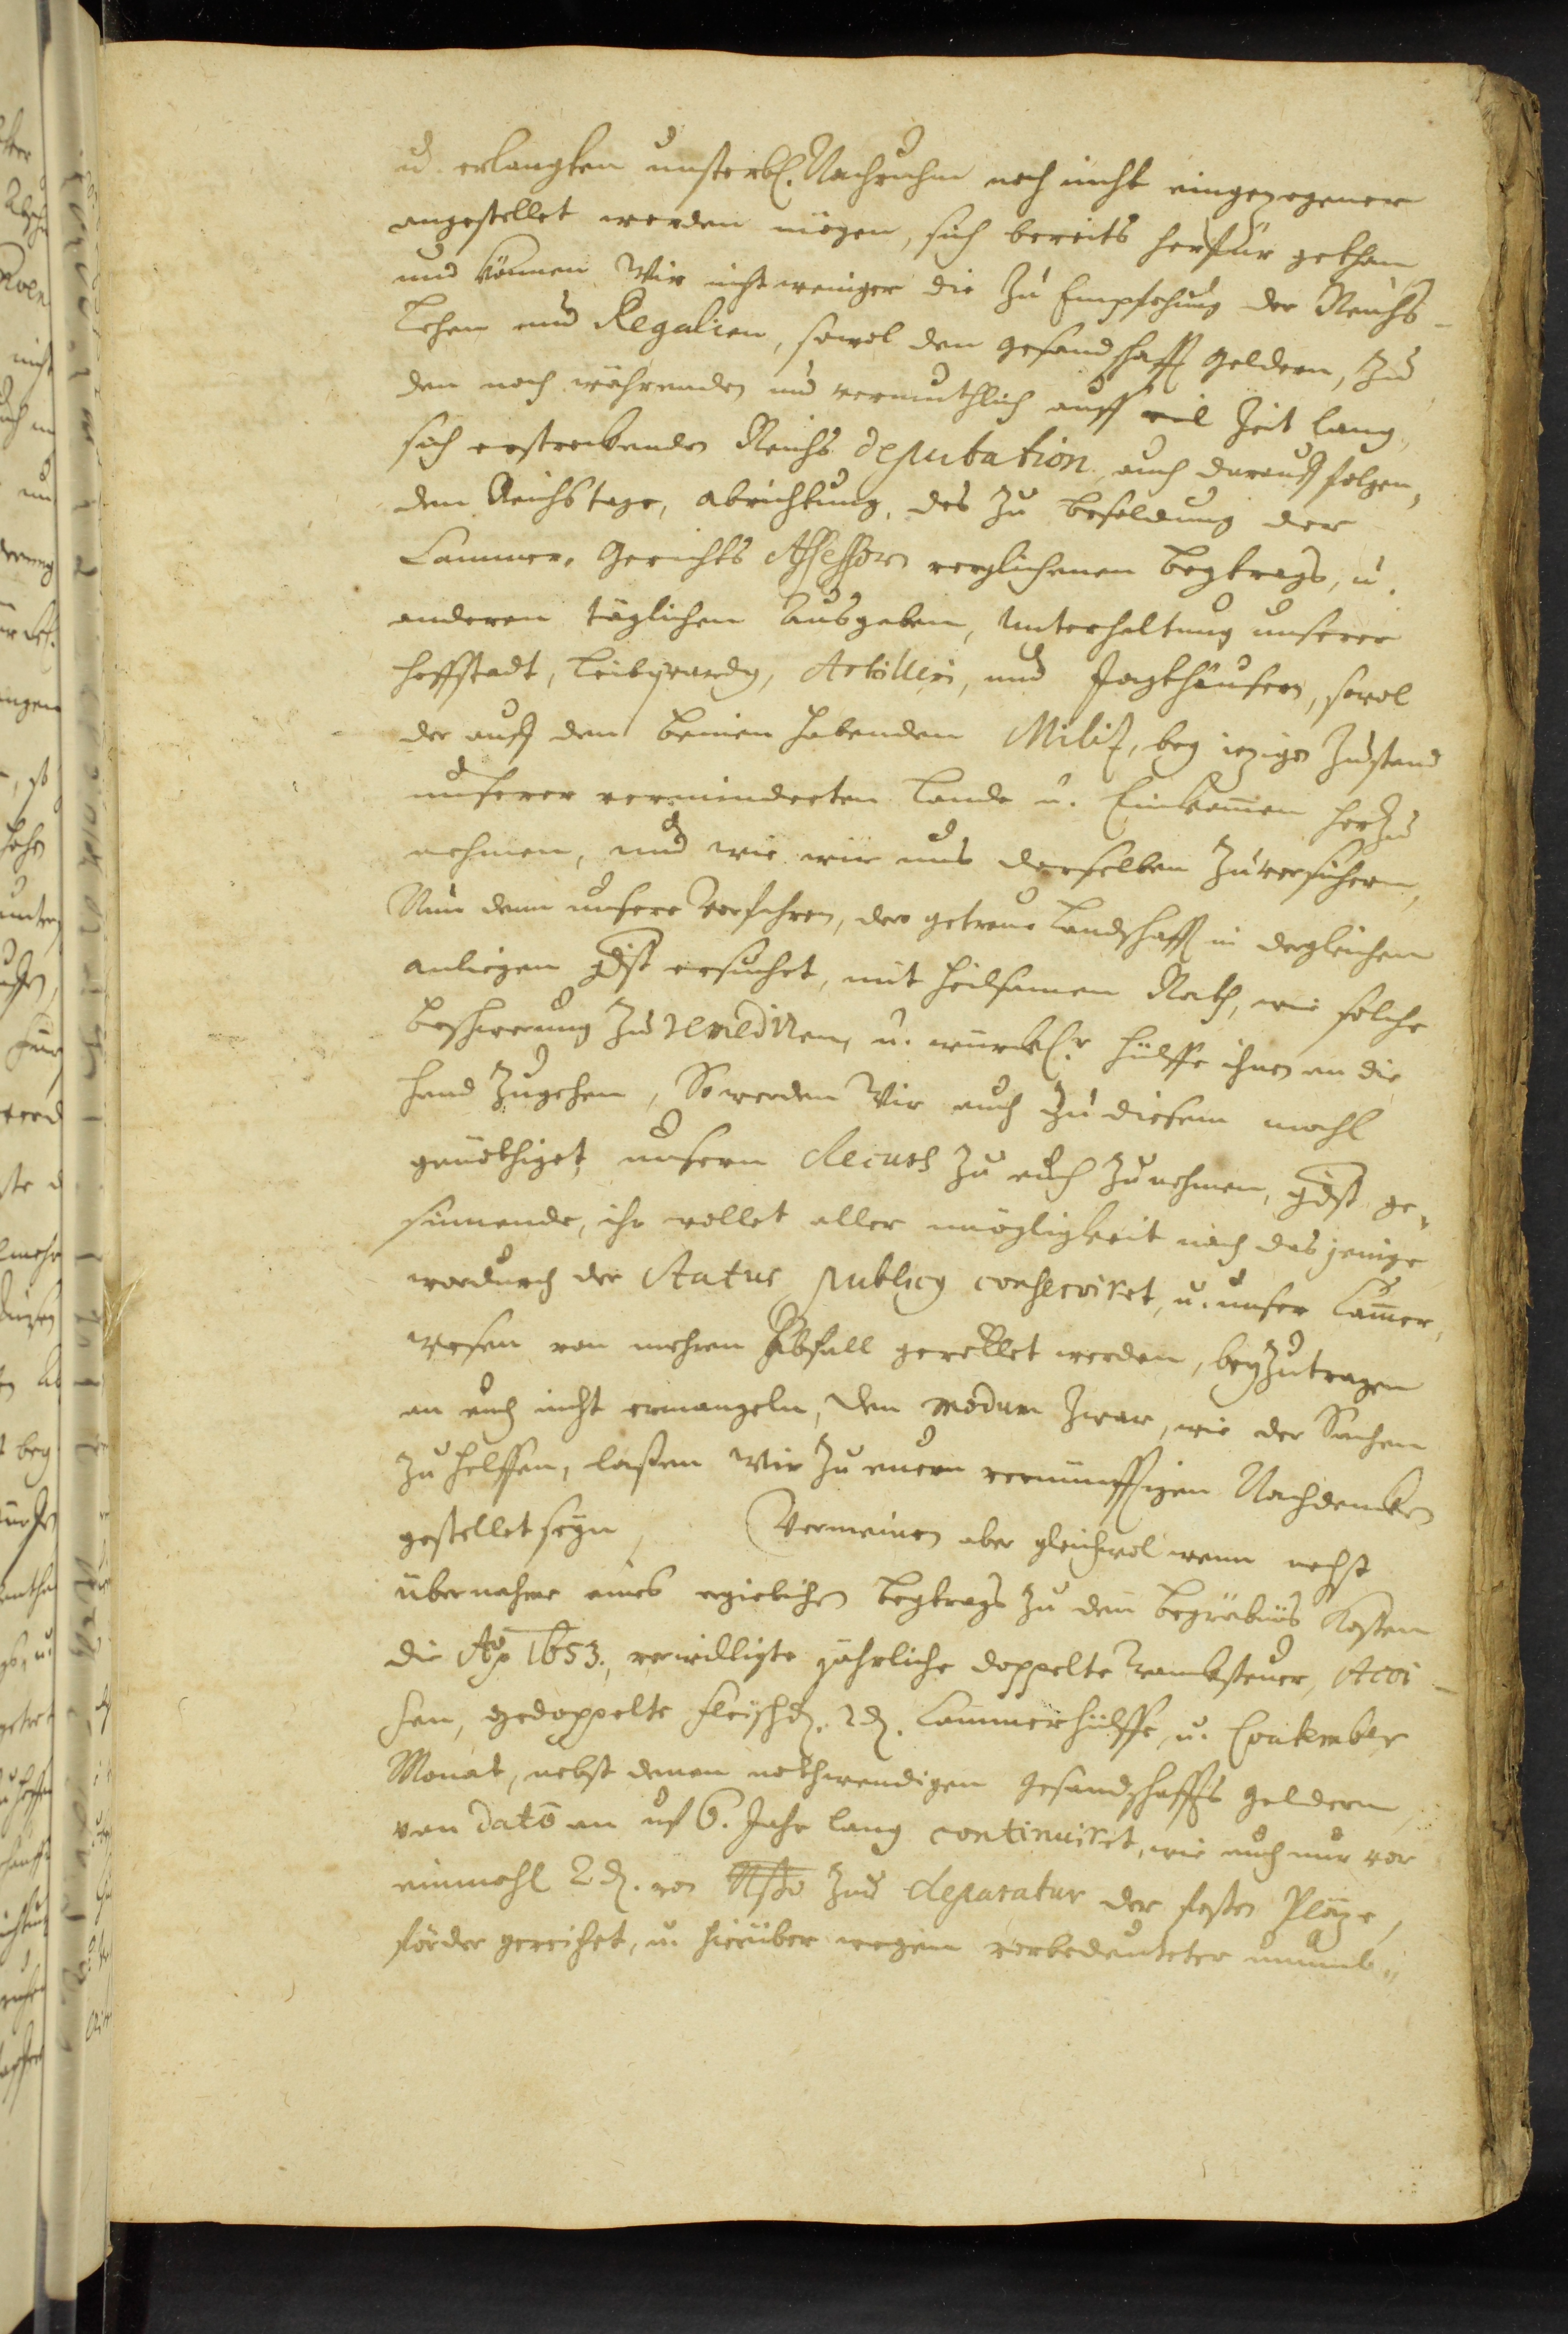 u. erlangten unsterbl. Nachruhm noch nicht eingezogener
angestellet werden mögen, sich bereits herfür gethan
und können Wir nicht weniger die Zu Empfehung der Reichs-
Lehen und Regalien, sowol den gesandschafft geldern, Zu
den noch währenden und vermuthlich auff viel Zeit lang,
sich erstreckenden Reichs deputation, auch darauff folgen,
den Reichstage, abrichtung, des Zu besoldung der
Cammer, Gerichts Assessorn verglichenen beytrags, u.
anderen täglichen Ausgaben, Unterhaltung unserer
hoffstadt, Leibguardy, Artilleri, und Jagthäusern, sowol
der auff den beinen habenden Militz, bey iezigen Zustand
unserer verminderten Lande u. Einkommen herZu
nehmen, und wie wir uns derselben Zuversichern,
Nun dann unsere Vorfahren, dero getreue Landschafft in dergleichen
anliegen gdst ersuchet, mit heilsamen Rath, wie solche
beschwerung Zu remediren, u. würckl.r hülffe ihnen an die
hand Zugehen, So werden Wir auch Zu diesem mahl
genöthiget, unsern recurs Zu euch Zunehmen, gdst ge,
sinnende, ihr wollet aller mögligkeit nach das jenige
wordurch der Status publicq conserviret, u. unser Cammer,
wesen von mehren Abfall gerettet werden, beyZutragen
an euch nicht ermangeln, den modum Zwar, wie der Sachen
Zu helffen, laßen Wir Zu euern vernünfftigen Nachdencken
gestellet seyn, Vermeinen aber gleichwol wenn nechst
übernahme eines ergiebichen beytrags Zu den begräbnüs Kosten
die Ao 1653. verwilligte jährliche doppelte Trancksteuer, Acci-
sen, gedoppelte fleisch₰. 2₰. Cammerhülffe, u. Quatember
Monat, nebst denen nothwendigen Gesandschaffts geldern,
von dato an uf 6. Jahr lang continuiret, wie auch nur vor
einmahl 2₰. von Zur reparatur der festen Pläze,
förder gereichet, u. hierüber wegen vorbedeuteter unumb,,